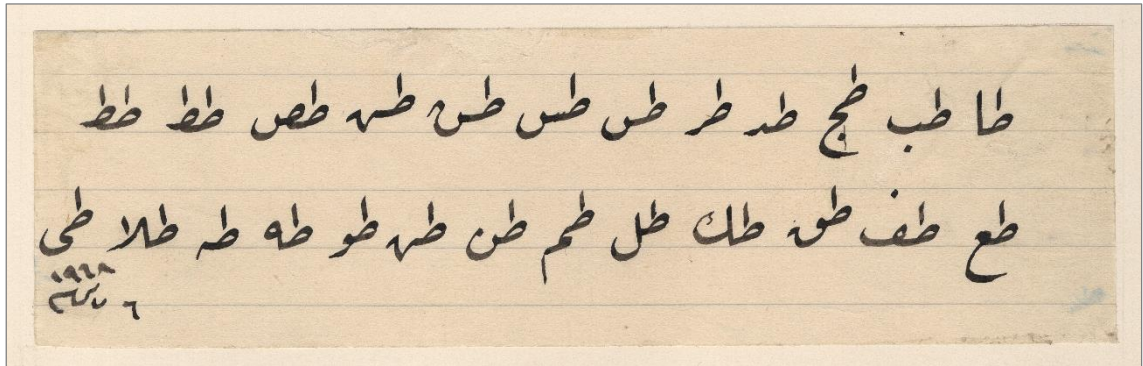 طا طب طج طد طر طس طس طش طش طص طط طط
طع طف طق طك طل طم طن طن طو طه طه طلا طى
١٩٦٨
٦